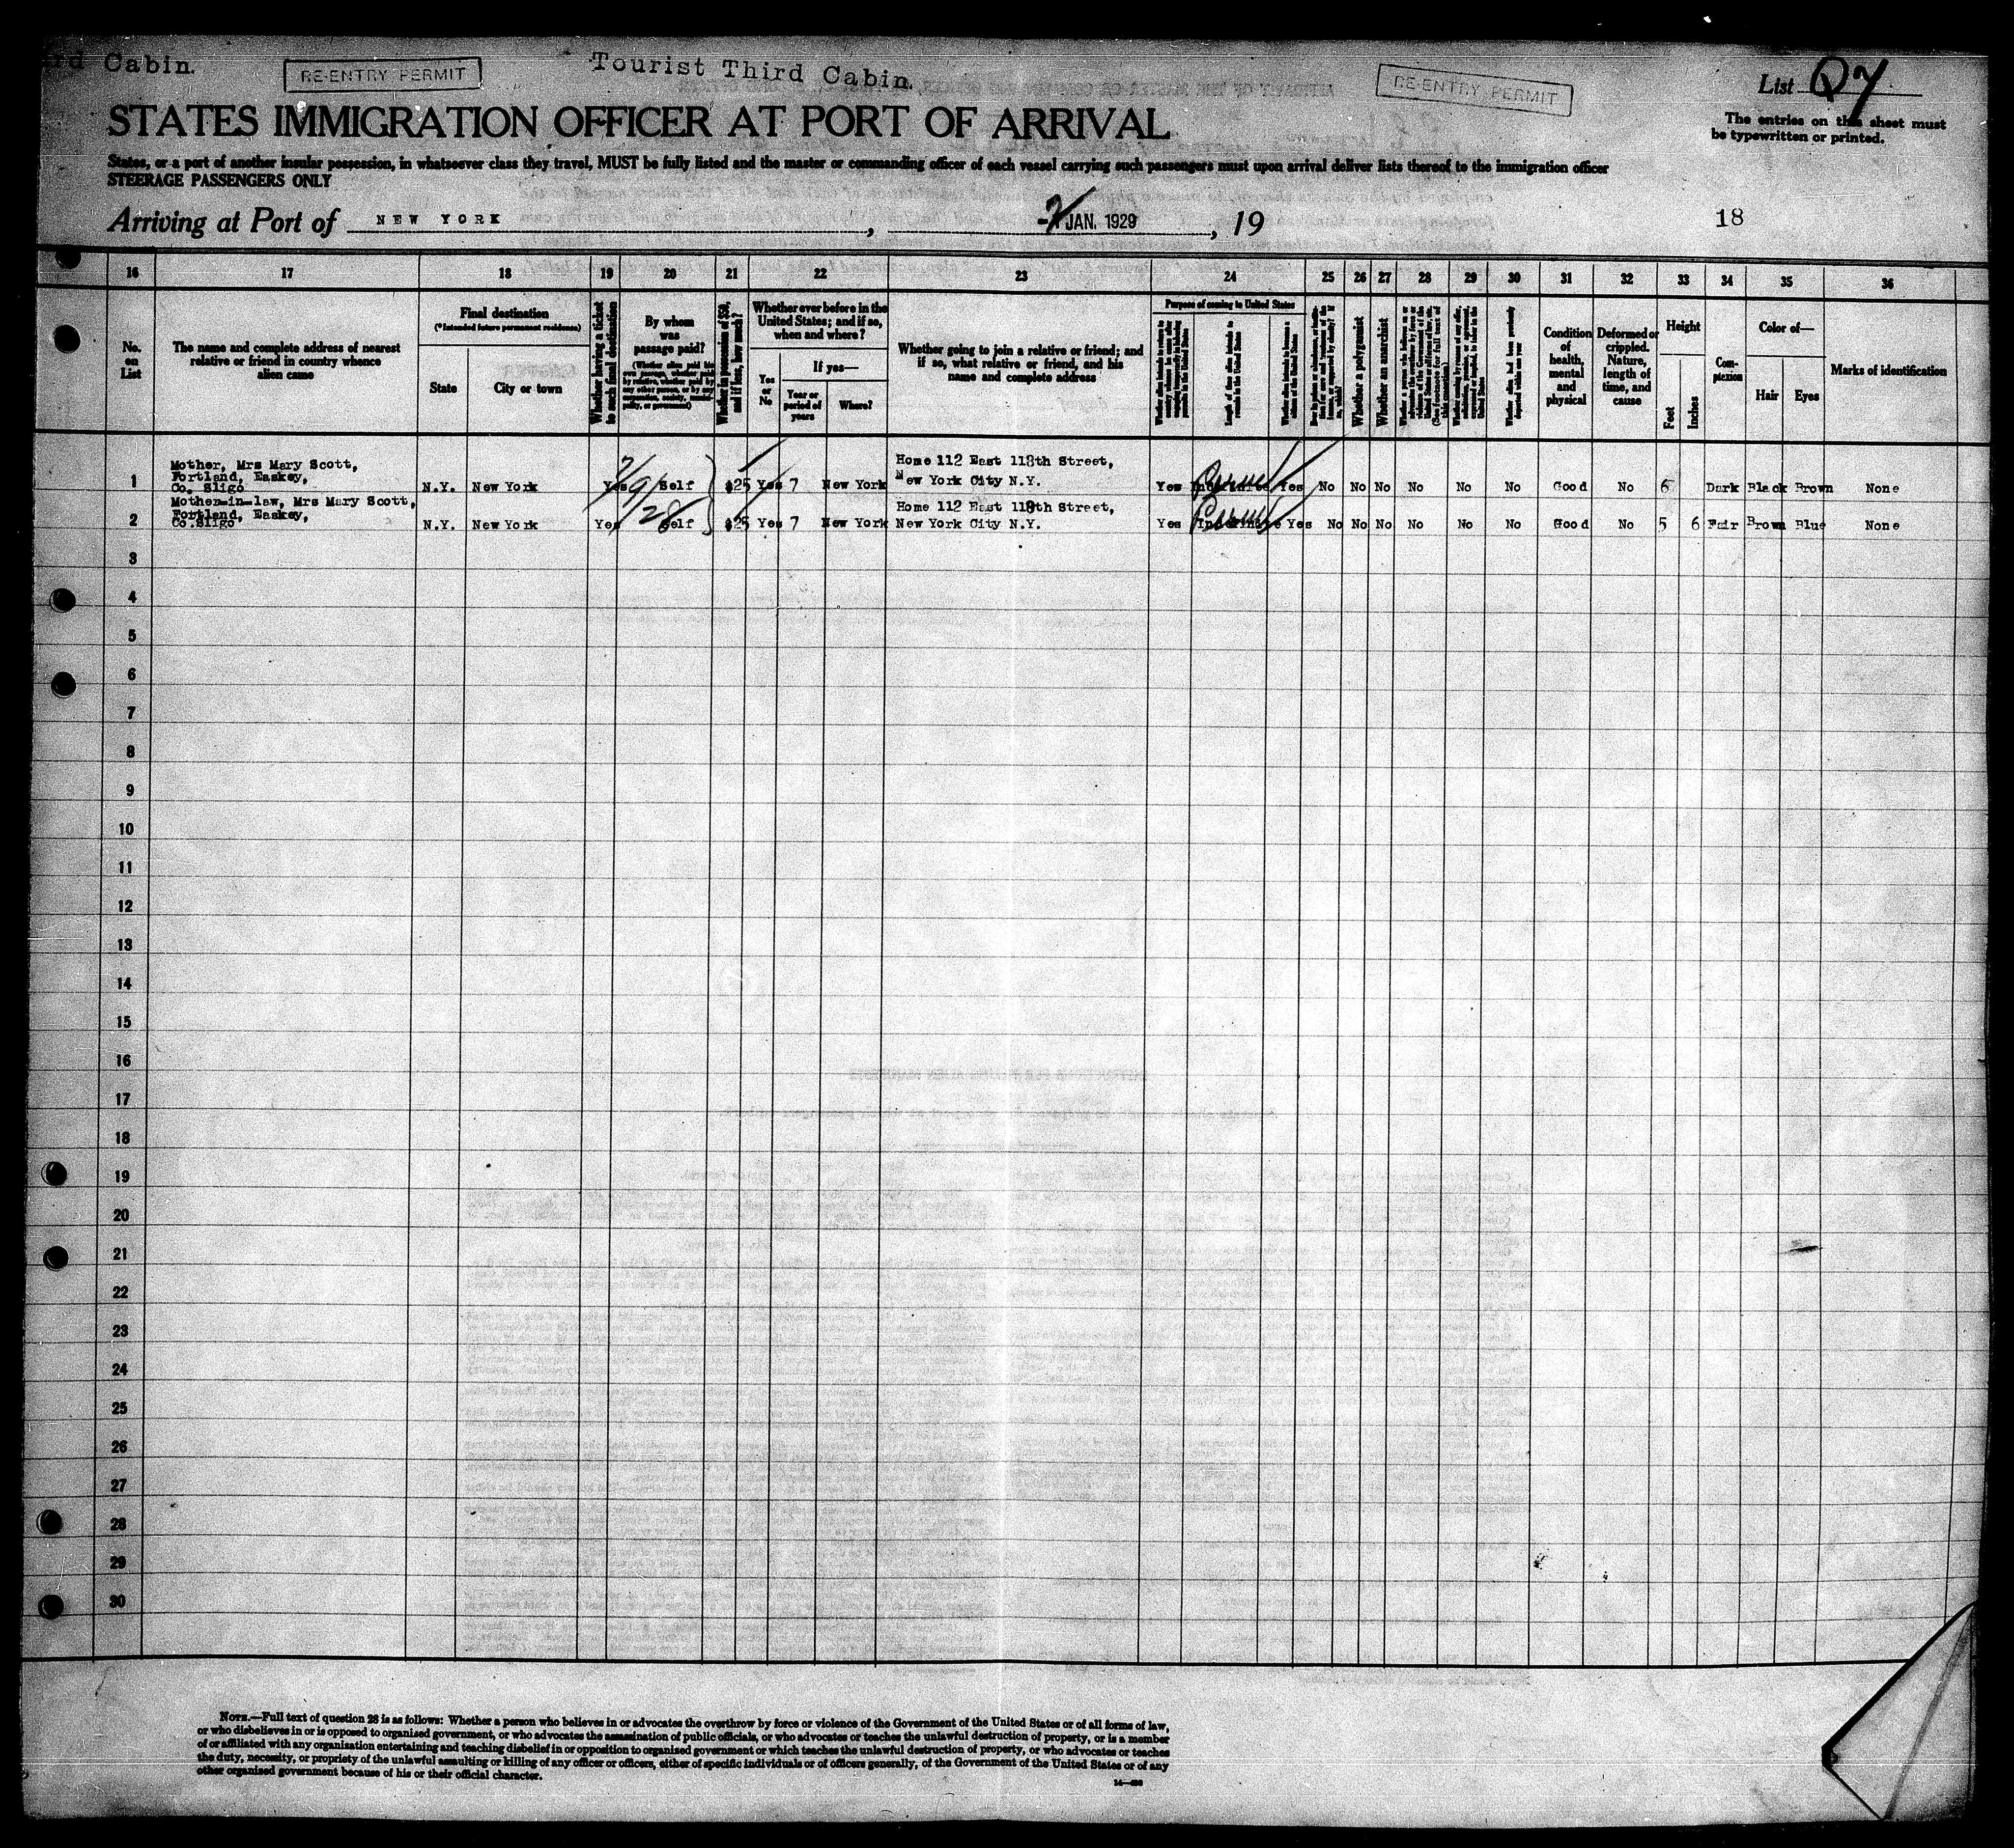 rd Cabin.
RE-ENTRY PERMIT
Tourist Third Cabin.
RE-ENTRY PERMIT
List
The entries on this sheet must
be typewritten or printed.
STATES IMMIGRATION OFFICER AT PORT OF ARRIVAL
States, or a port of another insular possession, in whatsoever class they travel, MUST be fully listed and the master or commanding officer of each vessel carrying such passengers must upon arrival deliver lists thereof to the immigration officer
STEERAGE PASSENGERS ONLY
Arriving at Port of NEW YORK , JAN. 1929 , 19
18
16 17 18 19 20 21 22 23 24 25 26 27 28 29 30 31 32 33 34 35 36
No.
on
List
The name and complete address of nearest
relative or friend in country whence
alien came
Final destination
(*Intended future permanent residence)
State
City or town
Whether having a ticket
to such final destination
By whom
was
passage paid?
(Whether alien paid his
own passage, whether paid
by relative, whether paid by
any other person, or by any
corporation, society, munici-
pality, or government)
Whether in possession of $50,
and if less, how much?
Whether ever before in the
United States; and if so,
when and where?
Yes
or
No
If yes—
Year or
period of
years
Where?
Whether going to join a relative or friend; and
if so, what relative or friend, and his
name and complete address
Purpose of coming to United States
Length of time alien intends to
remain in the United States
Whether a polygamist
Whether an anarchist
Condition
of
health,
mental
and
physical
Deformed or
crippled.
Nature,
length of
time, and
cause
Height
Feet
Inches
Com-
plexion
Color of—
Hair
Eyes
Marks of identification
Mother, Mrs Mary Scott,
Portland, Easkey,
Co. Sligo
1 N.Y. New York Yes Self $25 Yes 7 New York
Home 112 East 118th Street,
New York City N.Y.
Yes Indefinite Yes No No No No No No Good No 6 Dark Black Brown None
Mother-in-law, Mrs Mary Scott,
Portland, Easkey,
Co.Sligo
2 N.Y. New York Yes Self $25 Yes 7 New York
Home 112 East 118th Street,
New York City N.Y.
Yes Indefinite Yes No No No No No No Good No 5 6 Fair Brown Blue None
7/9/28
3
4
5
6
7
8
9
10
11
12
13
14
15
16
17
18
19
20
21
22
23
24
25
26
27
28
29
30
NOTE.—Full text of question 28 is as follows: Whether a person who believes in or advocates the overthrow by force or violence of the Government of the United States or of all forms of law,
or who disbelieves in or is opposed to organised government, or who advocates the assassination of public officials, or who advocates or teaches the unlawful destruction of property, or is a member
of or affiliated with any organisation entertaining and teaching disbelief in or opposition to organised government or which teaches the unlawful destruction of property, or who advocates or teaches
the duty, necessity, or propriety of the unlawful assaulting or killing of any officer or officers, either of specific individuals or of officers generally, of the Government of the United States or of any
other organised government because of his or their official character.